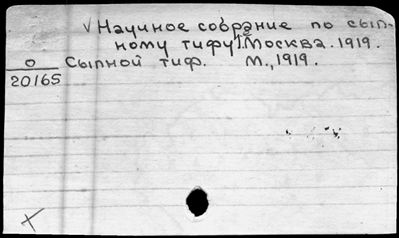 √ Научное собрание по сып-
ному тифу. Москва. 1919.
О Сыпной тиф. М., 1919.
20165